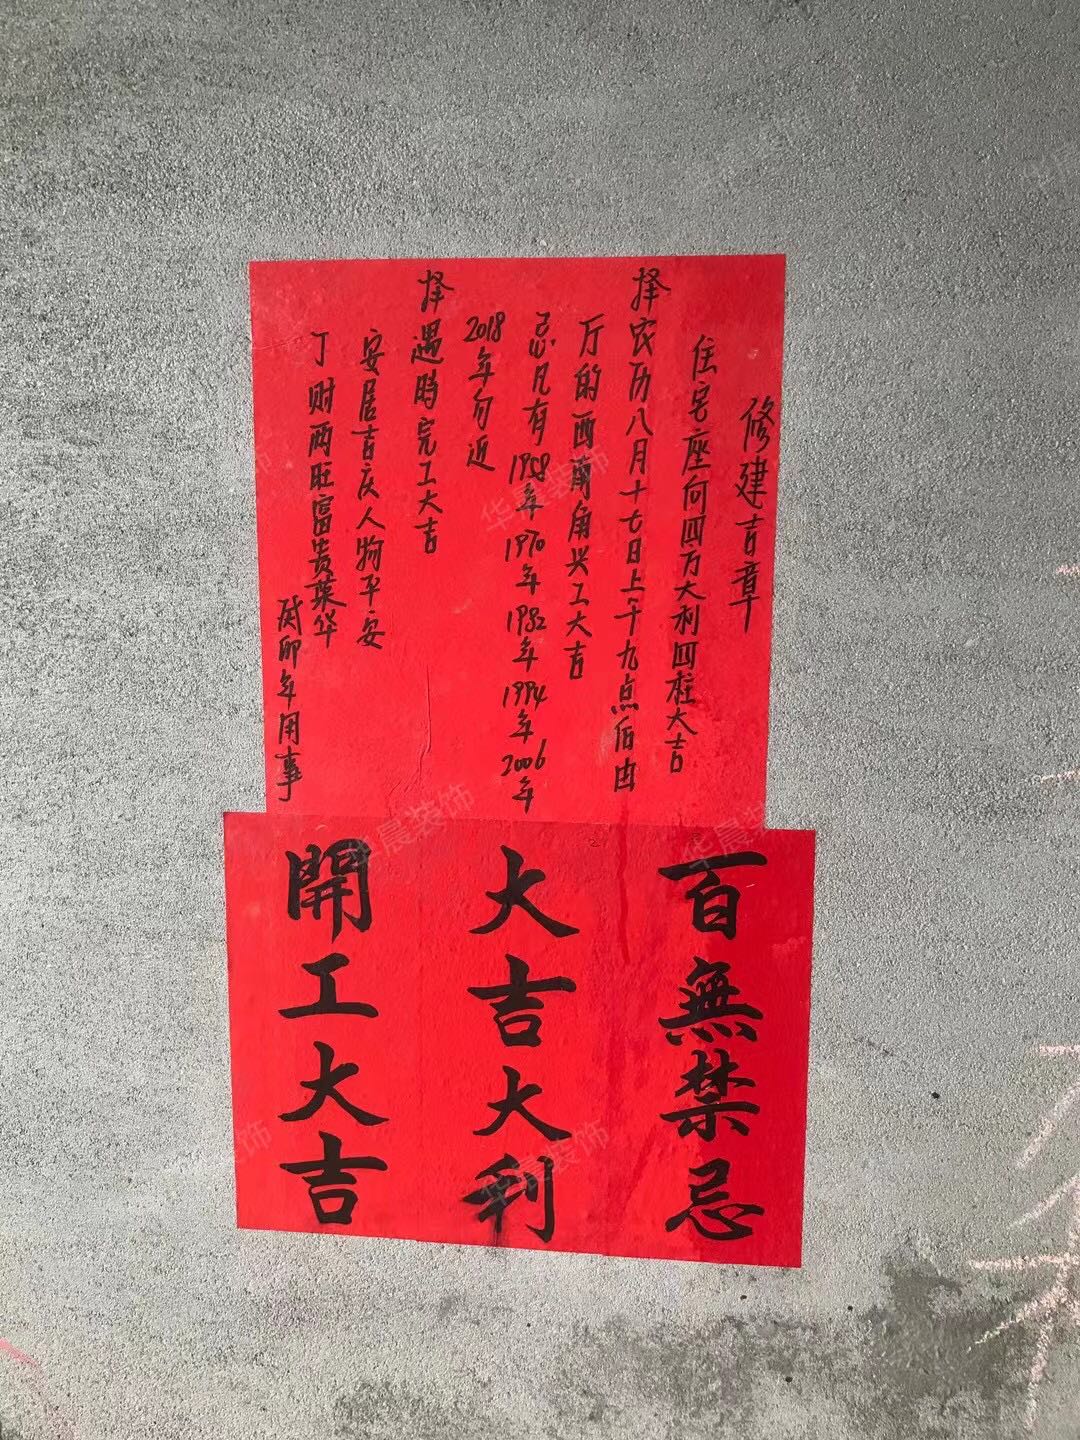 修建吉章
住宅座向四方大利四柱大吉
择农历八月十七日上午九点佰由
厅的西南角兴工大吉
忌凡有1958年1970年1982年1994年2006年
2018年勿近
择遇時完工大吉
安居吉庆人物平安
丁财两旺富贵荣华
癸卯年用事
百無禁忌
大吉大利
開工大吉
华晨装饰